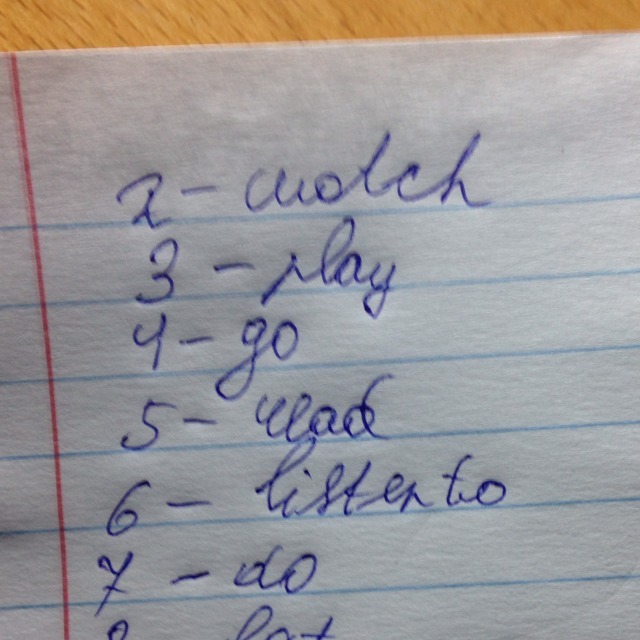 2 - watch
3 - play
4 - go
5 - read
6 - listen to
7 - do